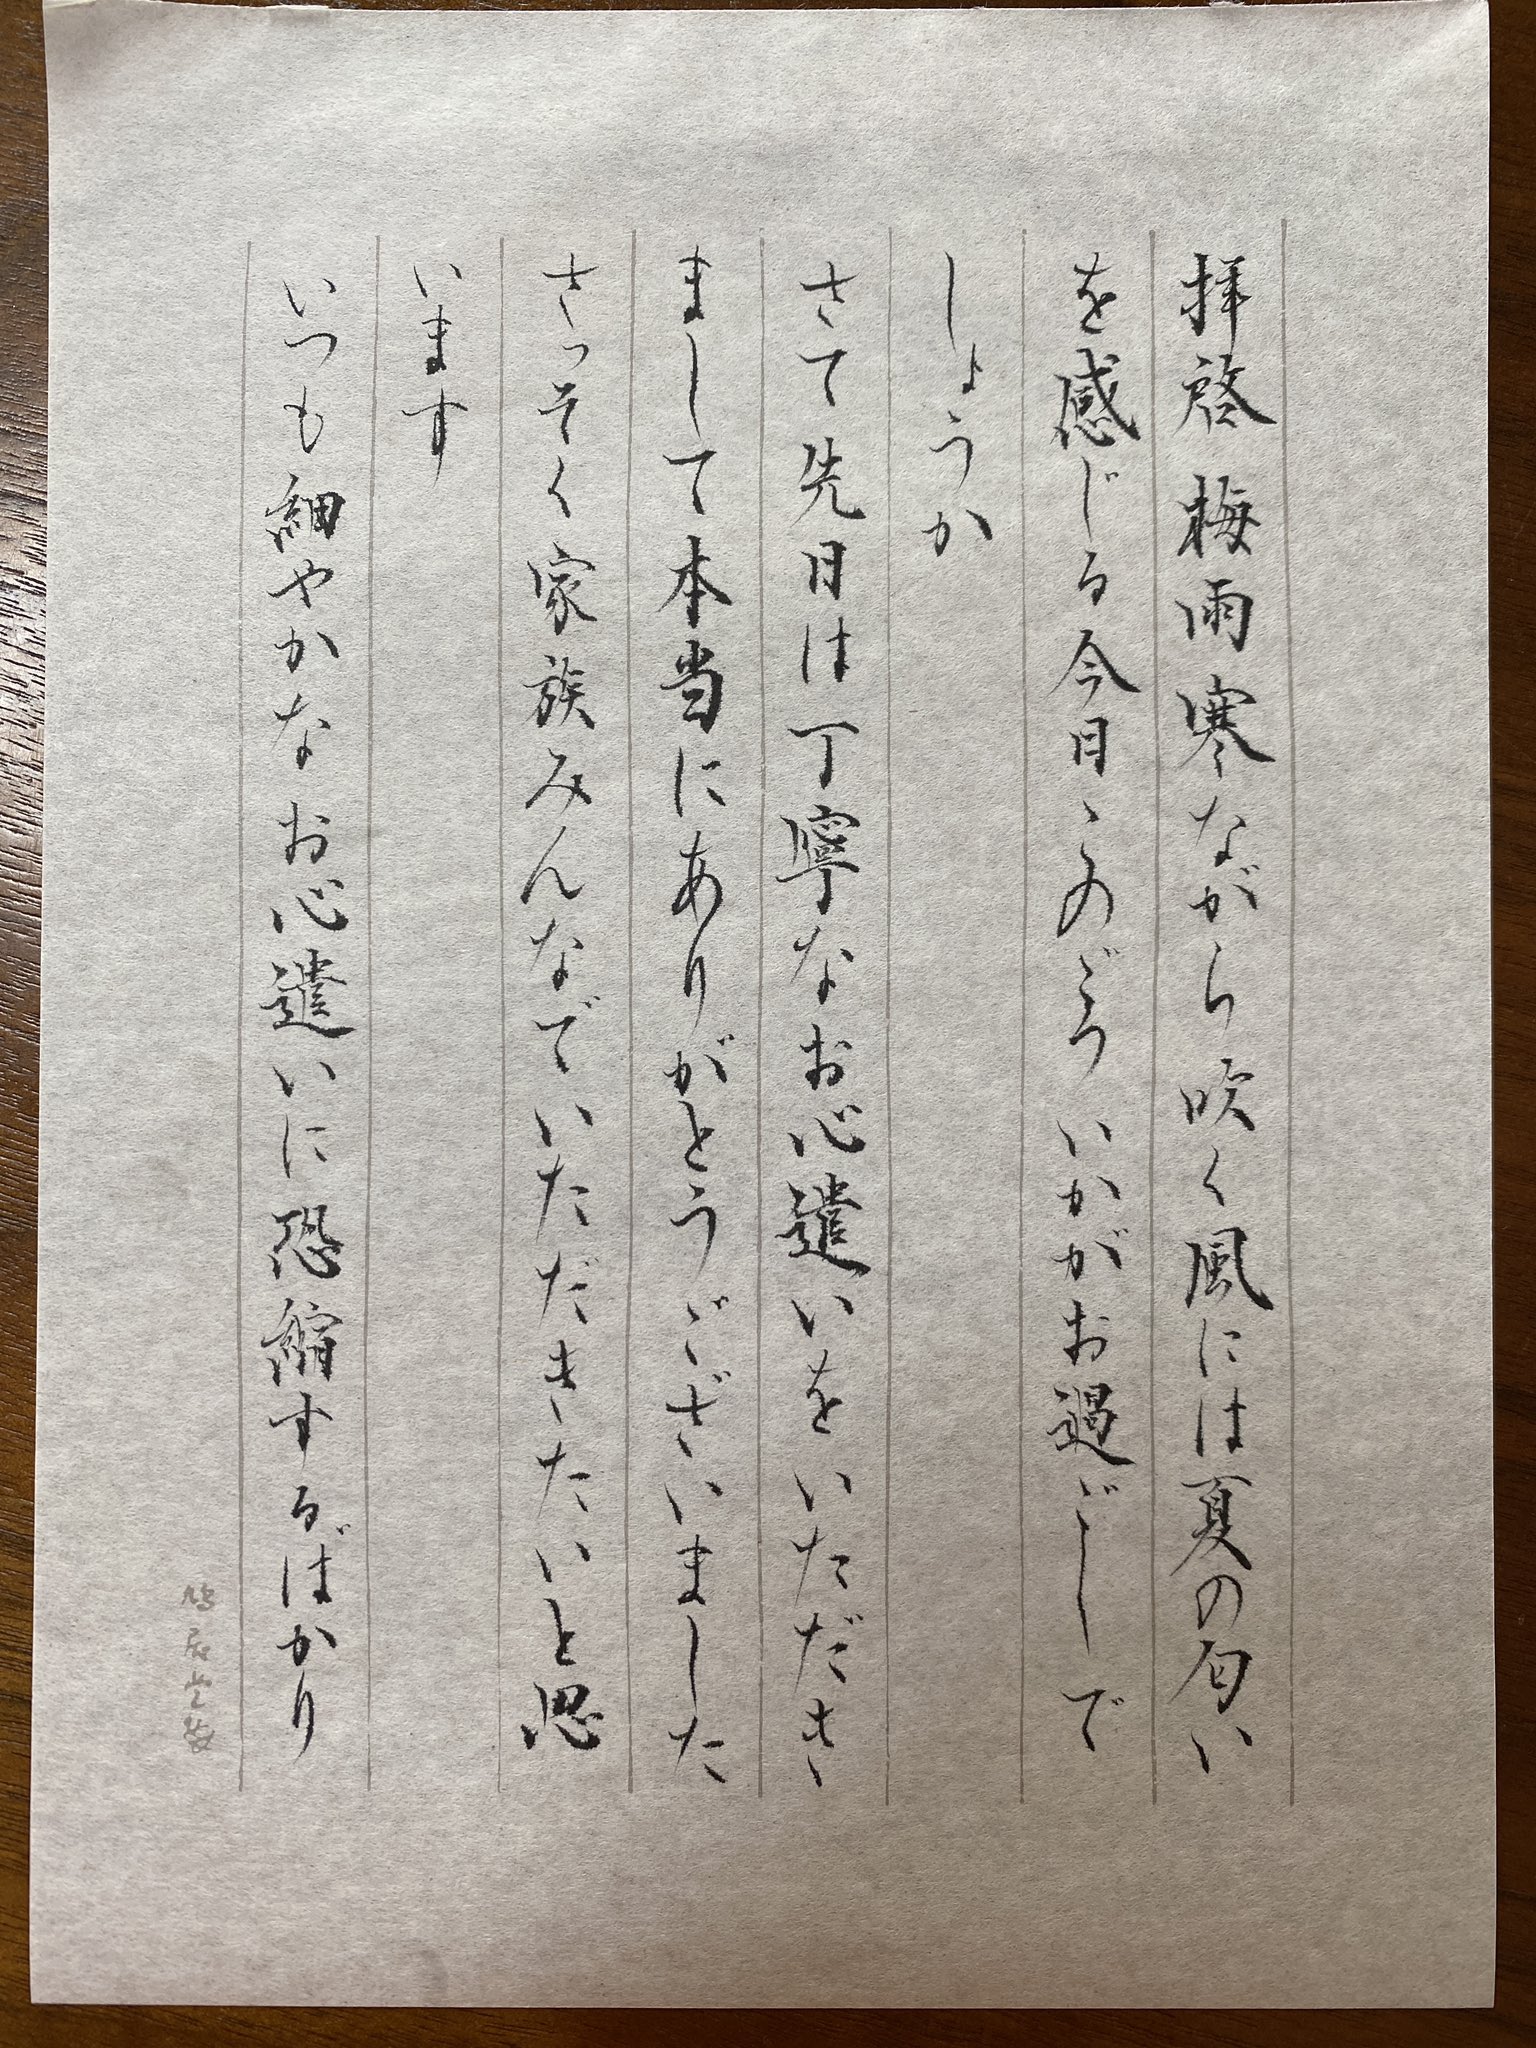 拝啓 梅雨寒ながら吹く風には夏の匂い
を感じる今日このごろ いかがお過ごしで
しょうか
さて先日は丁寧なお心遣いをいただき
まして本当にありがとうございました
さっそく家族みんなでいただきたいと思
います
いつも細やかなお心遣いに恐縮するばかり
鳩居堂製